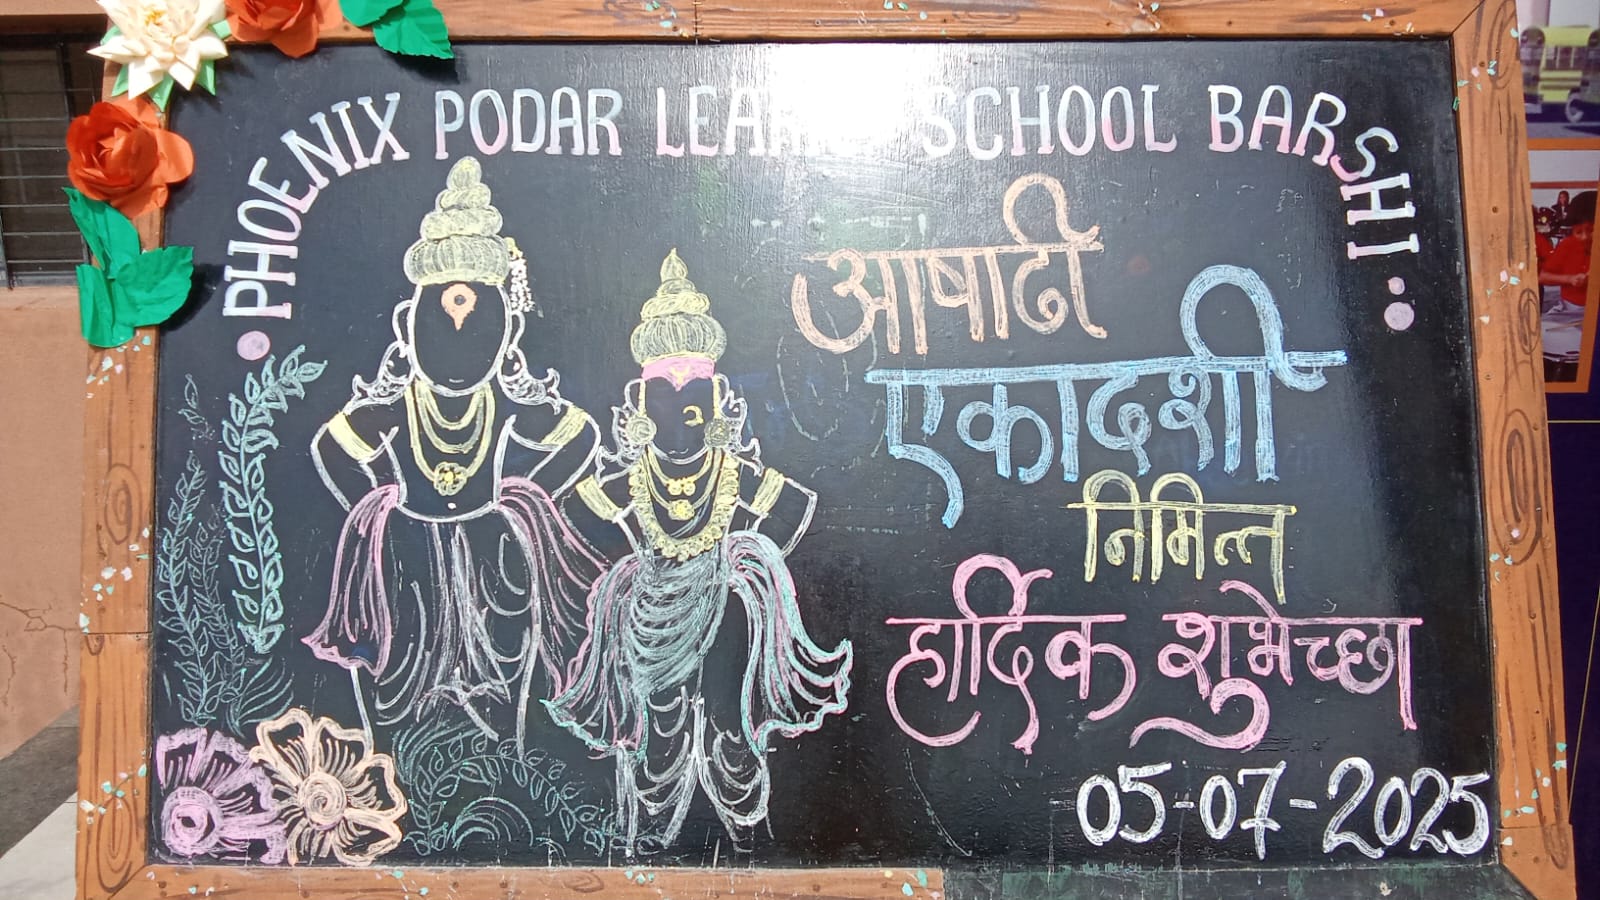 PHOENIX PODAR LEARN SCHOOL BARSHI
आषाढी
एकादशी
निमित्त
हार्दिक शुभेच्छा
05-07-2025